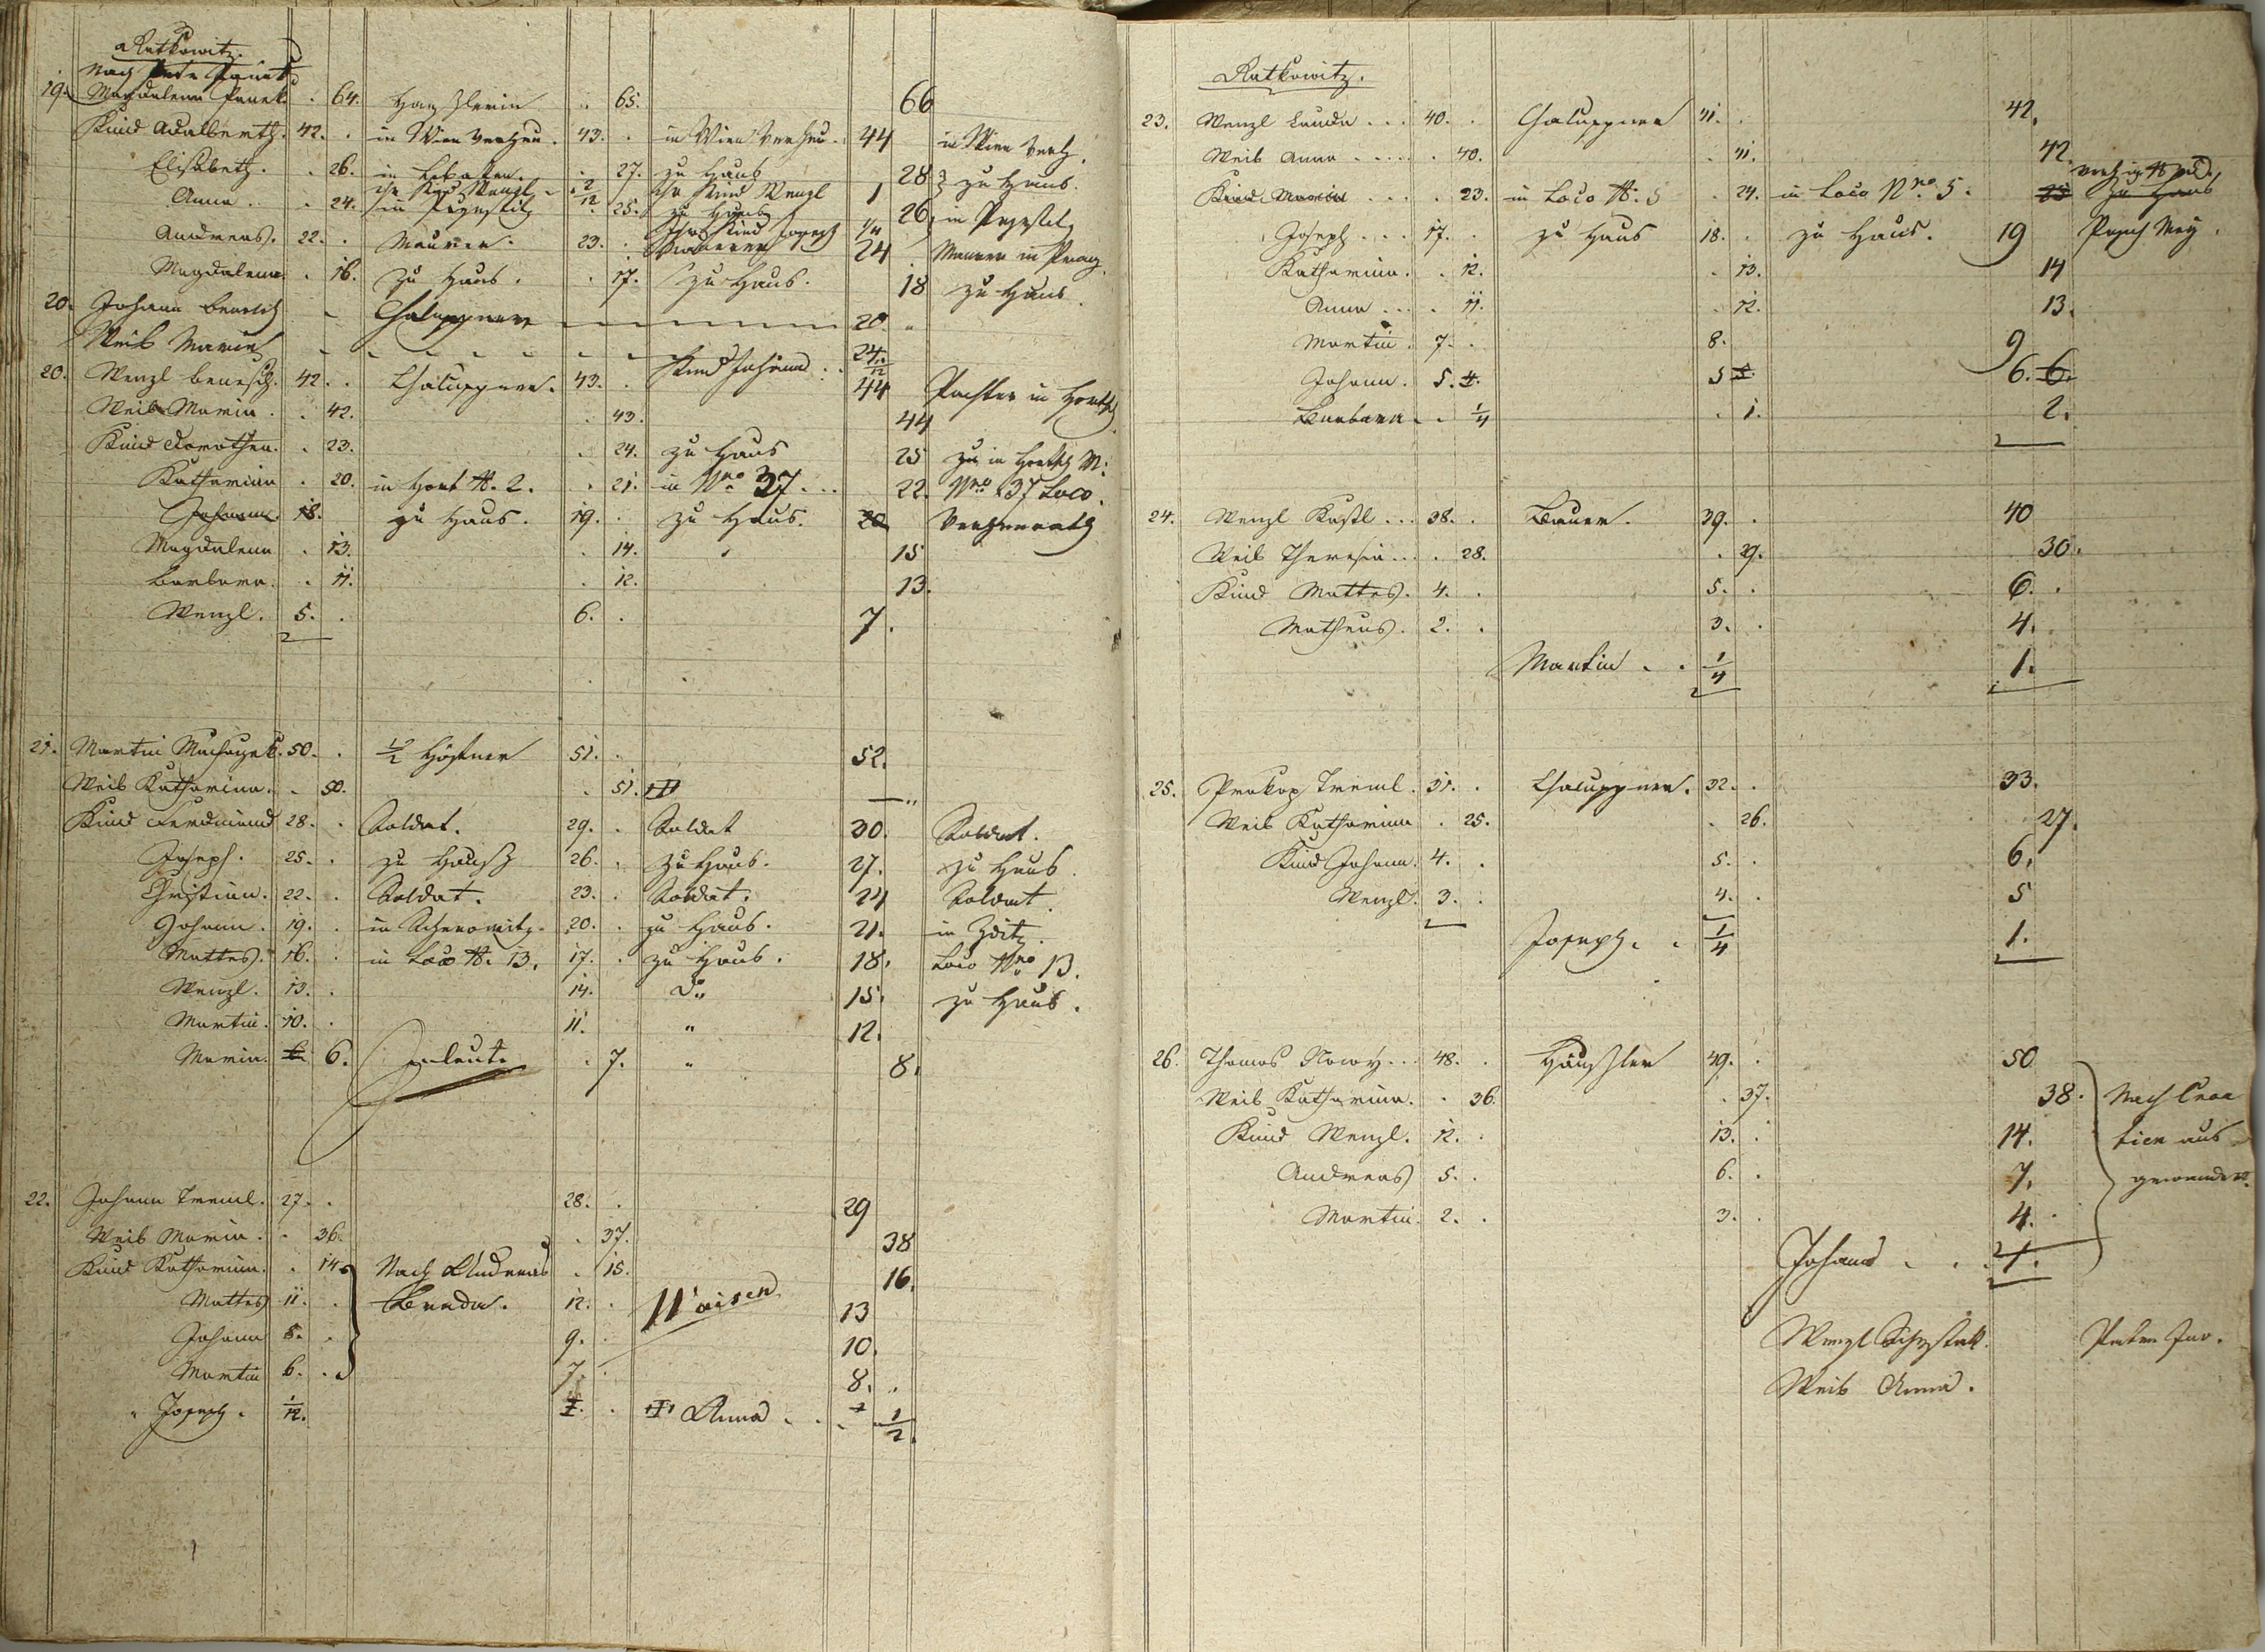 Ratkowitz.
Nach Panek
19. Magdalena Panek. . 64. Häuslerin . 65. 66
Kind Adalberth. 42. . in Wien verheu. 43. . in Wien verheu. 44 in Wien verh.
Elisabeth. . 26. in . 27. zu Haus 28 zu Haus.
ihr Kind Wenzl 2/12 ihr Kind Wenzl 1
Anna . . 24. in . 25. zu Haus 26 in
Ihr Kind Joseph 1/4
Andreas. 22. . Maurer. 23. . Maurer 24 Maurer in Prag.
Magdalena. . 16. zu Haus. . 17. zu Haus. 18 zu Haus.
20. Johann Benesch Chaluppner 20.
Weib Maria
Kind Johann
20. Wenzl Benesch. 42. . Chaluppner. 43. . 44 Pachter in
Weib Maria. . 42. . 43. 44
Kind Dorothea. . 23. . 24. zu Haus 25 zu in
Katharina . 20. in N. 2. . 21. in Nro 37... 22. Nro 37 Loco.
Johann. 18. zu Haus. 19. . zu Haus. 20 Verheurath
Magdalena . 13. . 14. 15
Barbara. . 11. . 12. 13.
Wenzl. 5. . 6. . 7.
21. Martin 50. . 1/2 Höfner 51. . 52.
Weib Katharina. . 50. . 51.
Kind Ferdinand 28. . Soldat. 29. . Soldat 30. Soldat.
Joseph. 25. . zu Haus 26. . zu Haus. 27. zu Haus.
Christian. 22. . Soldat. 23. . Soldat. 24 Soldat.
Johann. 19. . in 20. . zu Haus. 21. in Zditz.
Mattes. 16. . in Loco N. 13. 17. . zu Haus. 18. Loco Nro 13.
Wenzl. 13. . 14. do 15. zu Haus.
Martin. 10. . 11. " 12.
Maria. 6. 6. Inleute . 7. " 8.
22. Johann Treml. 27. . 28. . 29
Weib Maria. . 36. . 37. 38
Kind Katharina. . 14. Nach Andreas . 15. 16.
Mattes 11. . Benda. 12. . Waisen 13
Johann 8. . 9. . 10.
Martin 6. . 7. . 8. .
Joseph. 1/12. 1. . Anna . . 1/2.
Ratkowitz.
23. Wenzl Lauda ... 40. . Chaluppner 41. . 42.
Weib Anna ..... . 40. . 41. 42.
Kind Maria ... . 23. in Loco N. 5 . 24. in Loco Nro 5. 25 zu Haus
Joseph ... 17. . zu Haus 18. . zu Haus. 19
Katharina. . 12. . 13. 14
Anna ... . 11. . 12. 13.
Martin. 7. . 8. 9
Johann. 5. 4. 5 6. 6.
Barbara. . 1/4 . 1. 2.
24. Wenzl Kastl ... 38. . Bauer. 39. . 40
Weib Theresia ... . 28. . 29. 30.
Kind Mattes. 4. . 5. . 6. .
Matheus. 2. . 3. . 4.
Martin . . 1/4 1.
25. Prokop Treml. 31. . Chaluppner. 32. . 33.
Weib Katharina . 25. . 26. 27.
Kind Johann. 4. . 5. . 6.
Wenzl. 3. . 4. . 5
Joseph. . 1/4 1.
26. Thomas Nowy ... 48. . Häusler 49. . 50
Weib Katharina. . 36. . 37. 38. Nach Croa
Kind Wenzl. 12. . 13. . 14. tien aus
Andreas 5. . 6. . 7. gewandert.
Martin. 2. . 3. . 4. .
Johann . . . 1.
Wenzl
Weib Anna.